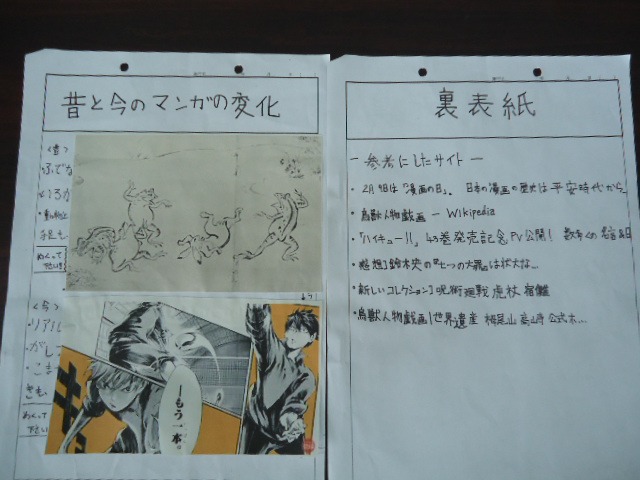 昔と今のマンガの変化
<昔>
めくって
下さい
<今>
リアル
めくって
下さい
ーもう一本。
裏表紙
ー参考にしたサイトー
・2月9日は「漫画の日」。日本の漫画の歴史は平安時代から…
・鳥獣人物戯画 − Wikipedia
・「ハイキュー!!」43巻発売記念PV公開! 数多くの
・感想]鈴木央の『七つの大罪』は壮大な…
・新しいコレクション] 呪術廻戦 虎杖 宿儺
・鳥獣人物戯画|世界遺産 栂尾山 高山寺 公式ホ…